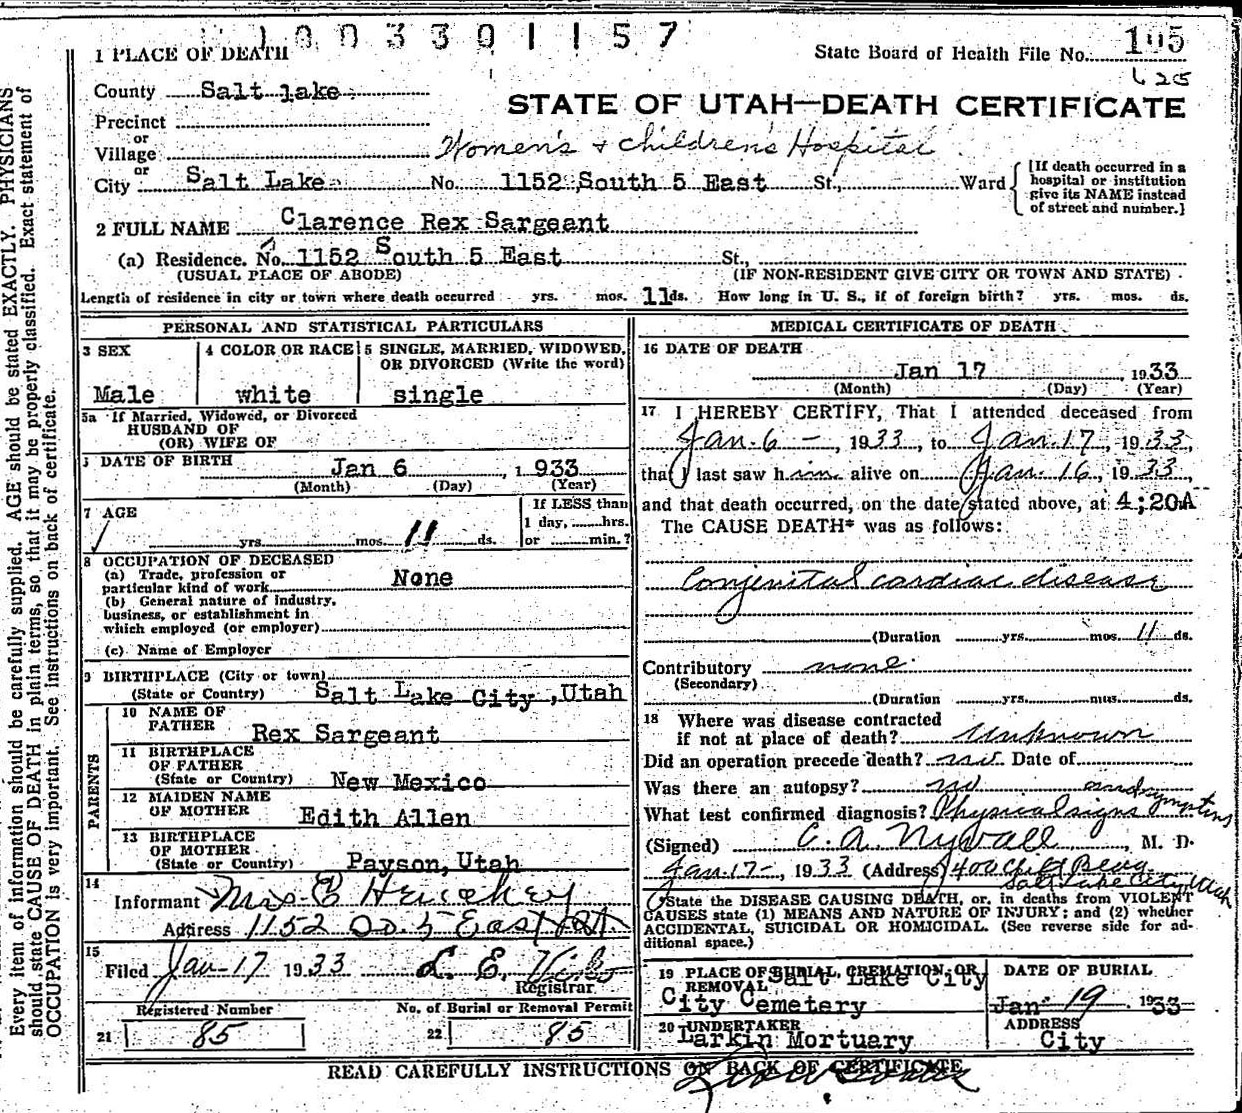 1003301157
1 PLACE OF DEATH
State Board of Health File No. 105
County Salt lake
STATE OF UTAH—DEATH CERTIFICATE
Precinct
or
Village
Women's + Children's Hospital
or
City Salt Lake No. 1152 South 5 East St., Ward
[If death occurred in a
hospital or institution
give its NAME instead
of street and number.]
2 FULL NAME Clarence Rex Sargeant
(a) Residence. No. 1152 South 5 East St.,
(USUAL PLACE OF ABODE) (IF NON-RESIDENT GIVE CITY OR TOWN AND STATE)
Length of residence in city or town where death occurred yrs. mos. 11 ds. How long in U. S., if of foreign birth? yrs. mos. ds.
PERSONAL AND STATISTICAL PARTICULARS
3 SEX
Male
4 COLOR OR RACE
white
5 SINGLE, MARRIED, WIDOWED,
OR DIVORCED (Write the word)
single
5a If Married, Widowed, or Divorced
HUSBAND OF
(OR) WIFE OF
DATE OF BIRTH
Jan 6, 1933
(Month) (Day) (Year)
7 AGE
yrs. mos. 11 ds.
If LESS than
1 day, hrs.
or min.?
8 OCCUPATION OF DECEASED
(a) Trade, profession or
particular kind of work None
(b) General nature of industry,
business, or establishment in
which employed (or employer)
(c) Name of Employer
9 BIRTHPLACE (City or town)
(State or Country) Salt Lake City, Utah
PARENTS
10 NAME OF
FATHER Rex Sargeant
11 BIRTHPLACE
OF FATHER
(State or Country) New Mexico
12 MAIDEN NAME
OF MOTHER Edith Allen
13 BIRTHPLACE
OF MOTHER
(State or Country) Payson, Utah
14
Informant Mrs. E
Address 1152 So. 5 East St.
15
Filed Jan-17 1933 L. E.
Registrar
Registered Number
21 85
No. of Burial or Removal Permit
22 85
MEDICAL CERTIFICATE OF DEATH
16 DATE OF DEATH
Jan 17, 1933
(Month) (Day) (Year)
17 I HEREBY CERTIFY, That I attended deceased from
Jan. 6 -, 1933, to Jan. 17, 1933,
that I last saw him alive on Jan. 16, 1933,
and that death occurred, on the date stated above, at 4:20A
The CAUSE DEATH* was as follows:
Conjenital cardiac disease
(Duration yrs. mos. 11 ds.
Contributory none.
(Secondary)
(Duration yrs. mos. ds.
18 Where was disease contracted
if not at place of death? Unknown
Did an operation precede death? no. Date of
Was there an autopsy? no
What test confirmed diagnosis? Physical signs and symptins
(Signed) C. A. Nyvall, M. D.
Jan-17-, 1933 (Address) 400 Clift Bldg
Salt Lake City, Utah
State the DISEASE CAUSING DEATH, or, in deaths from VIOLENT
CAUSES state (1) MEANS AND NATURE OF INJURY; and (2) whether
ACCIDENTAL, SUICIDAL OR HOMICIDAL. (See reverse side for ad-
ditional space.)
19 PLACE OF BURIAL, CREMATION, OR
REMOVAL Salt Lake City
City Cemetery
DATE OF BURIAL
Jan 19, 1933
20 UNDERTAKER
Larkin Mortuary
ADDRESS
City
READ CAREFULLY INSTRUCTIONS ON BACK OF CERTIFICATE
Every item of information should be carefully supplied. AGE should be stated EXACTLY. PHYSICIANS
should state CAUSE OF DEATH in plain terms, so that it may be properly classified. Exact statement of
OCCUPATION is very important. See instructions on back of certificate.